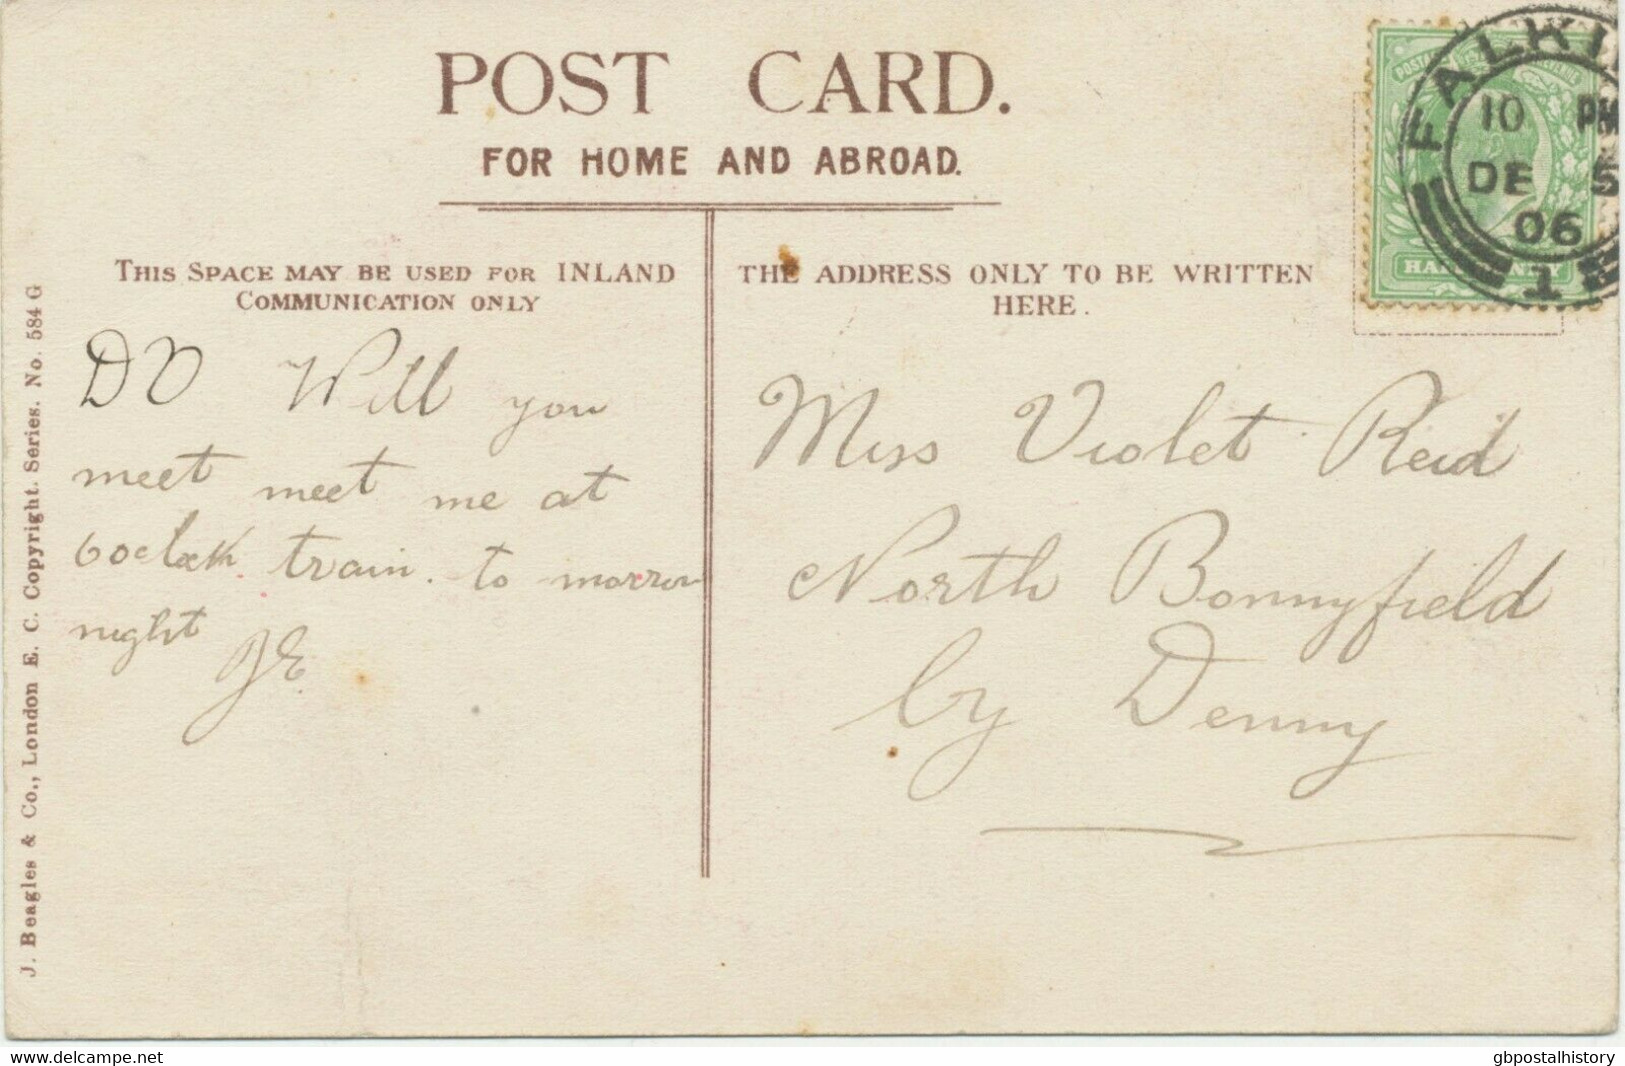 POST CARD.
FOR HOME AND ABROAD.
THIS SPACE MAY BE USED FOR INLAND
COMMUNICATION ONLY
THE ADDRESS ONLY TO BE WRITTEN
HERE.
DV Will you
meet meet me at
6 oclock train. to morrow
night
JE
Miss Violet Reid
North Bonnyfield
by Denny
J. Beagles & Co., London E. C. Copyright. Series. No. 584 G
POSTAGE REVENUE
HALFPENNY
FALKI
10 PM
DE 5
06
1
delcampe.net
gbpostalhistory